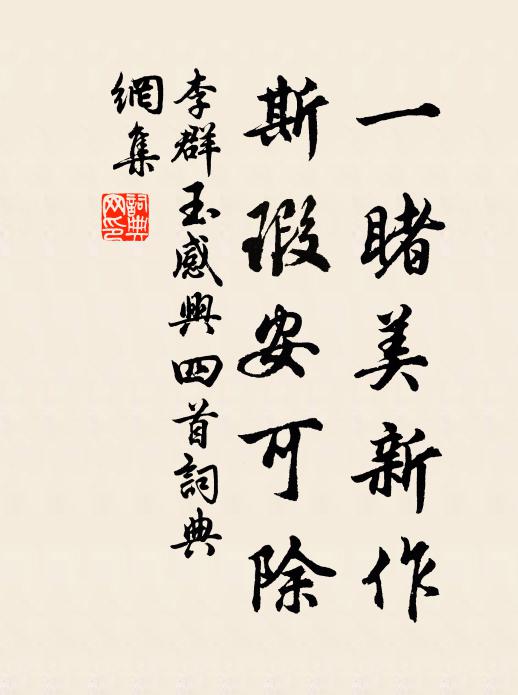 一睹美新作
斯瑕安可除
李群玉感興四首詞典
網集
詞典网印